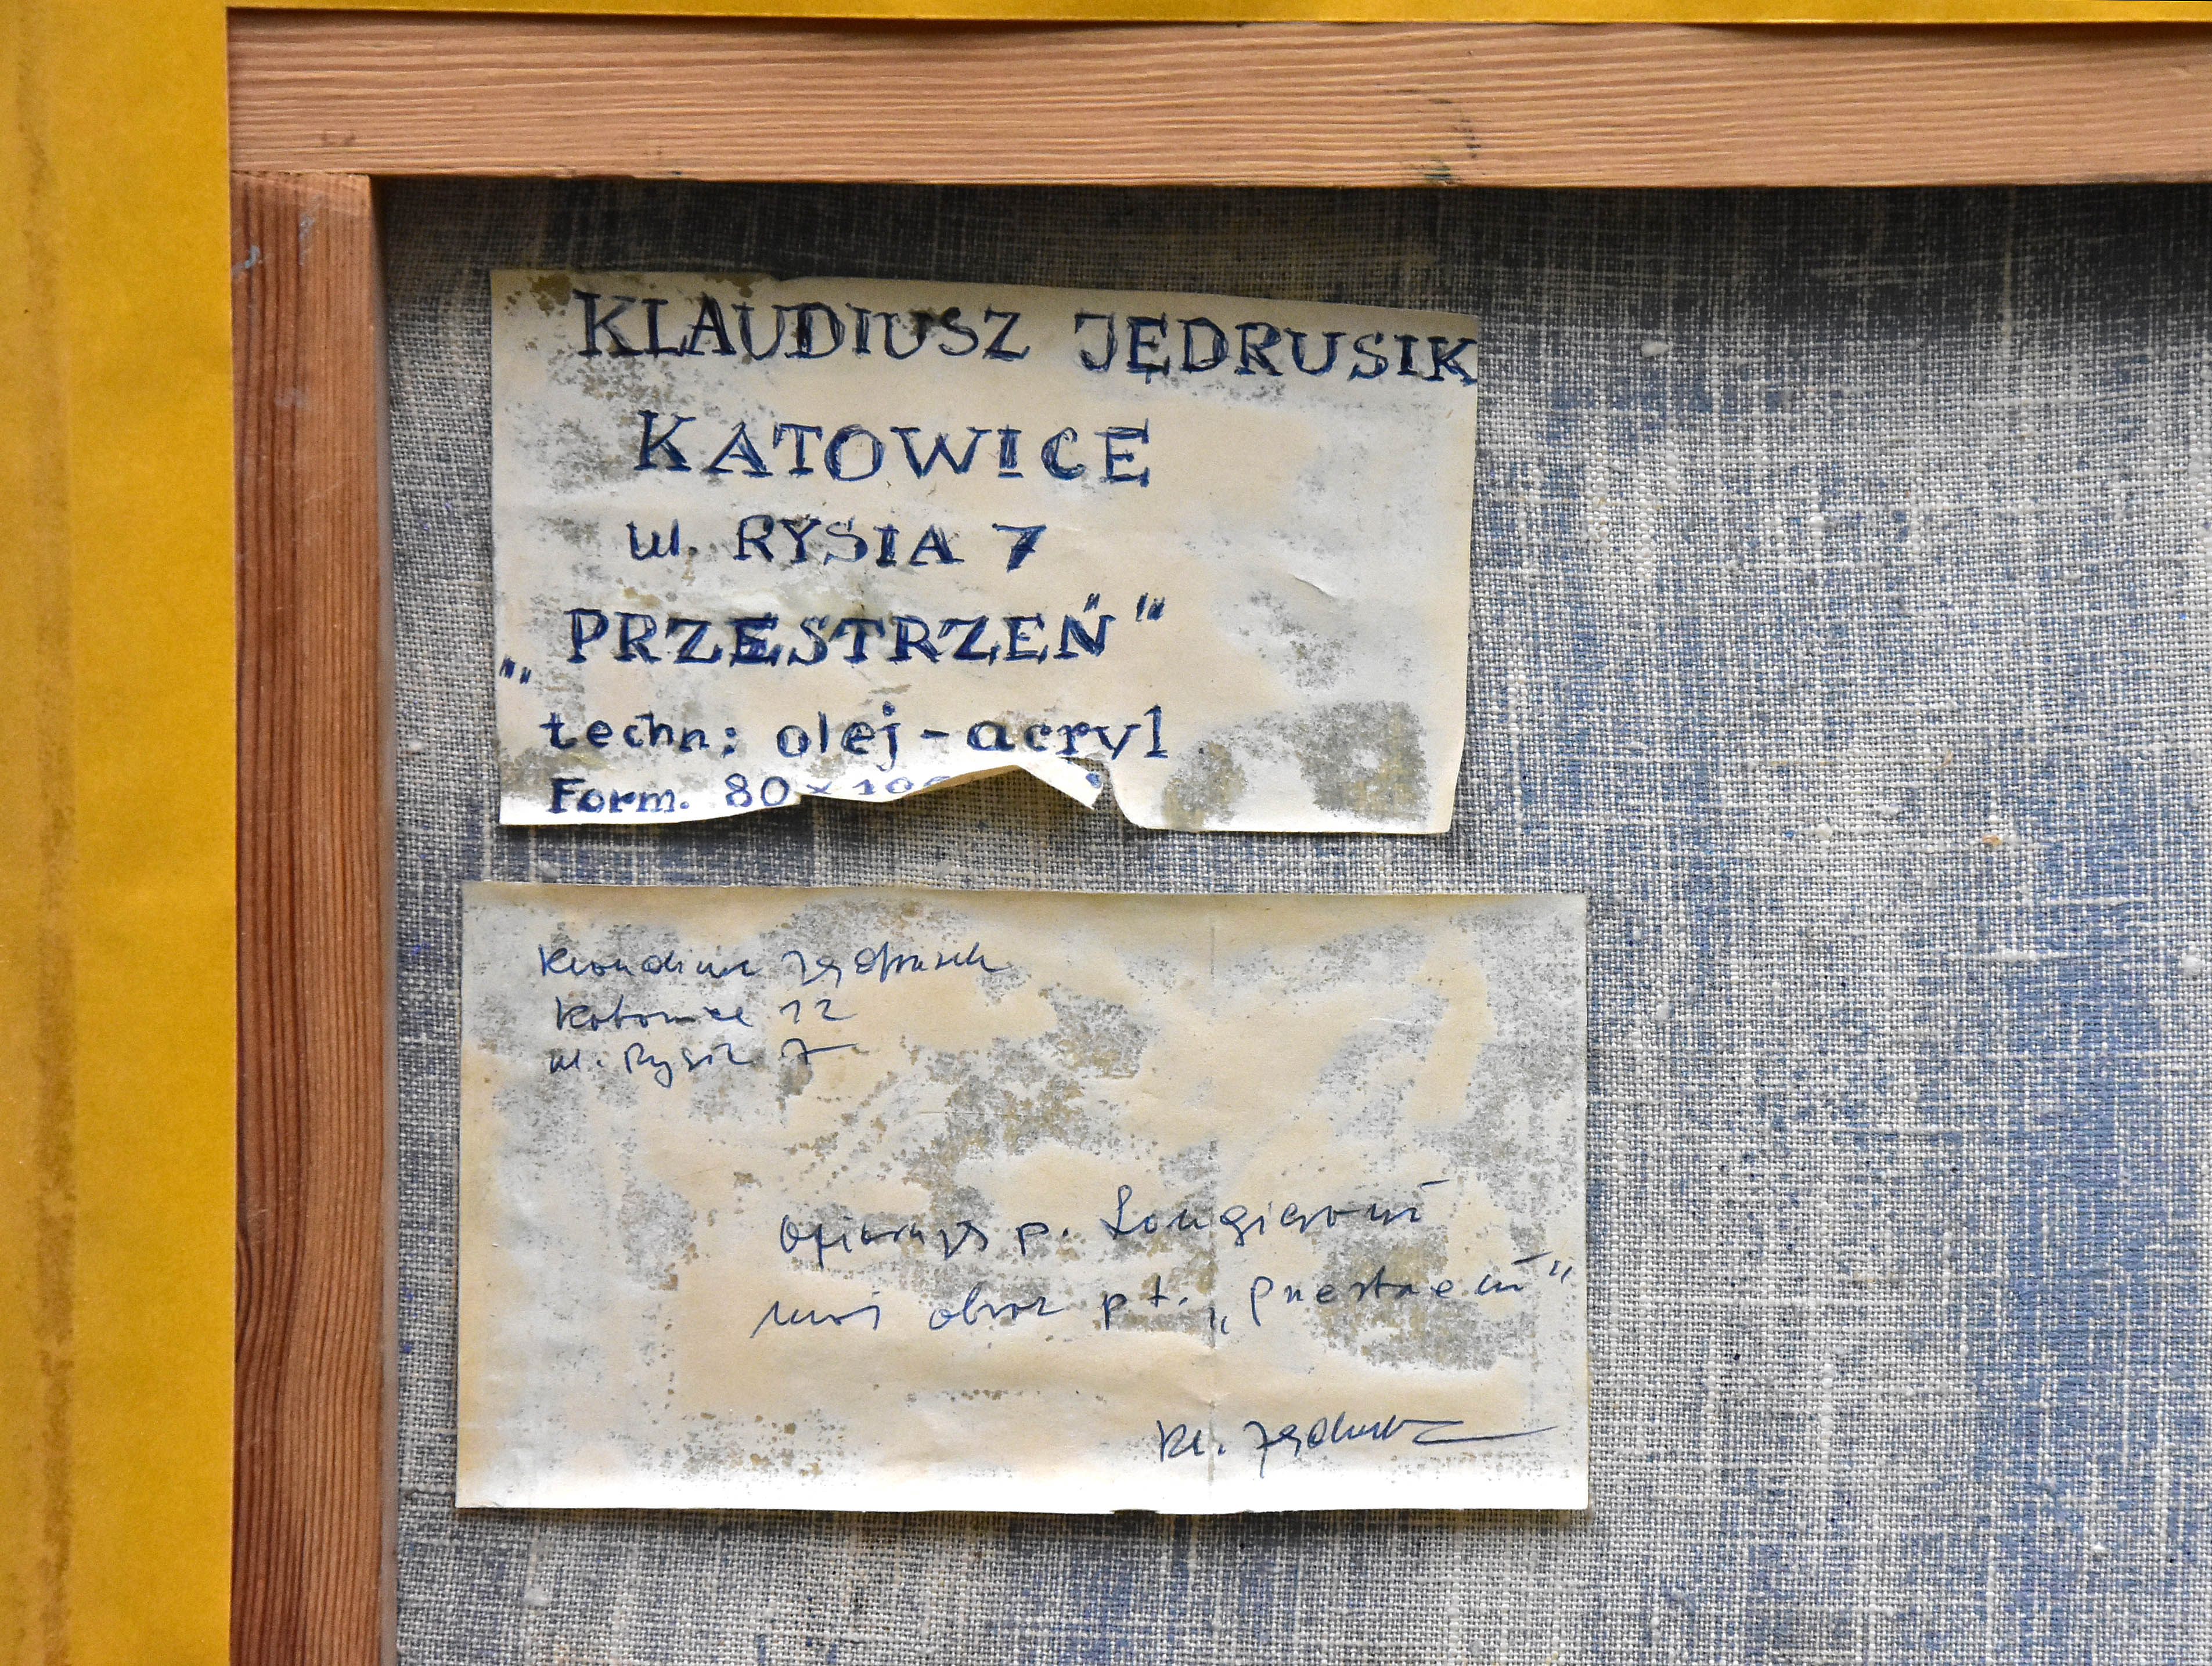 KLAUDIUSZ JĘDRUSIK
KATOWICE
ul. RYSIA 7
„PRZESTRZEŃ"
techn: olej-acryl
Form. 80 x 100
Klaudiusz Jędrusik
Katowice 12
ul. Rysia 7
Ofiaruję p.
mój obraz pt. „Przestrzeń"
Kl. Jędrusik